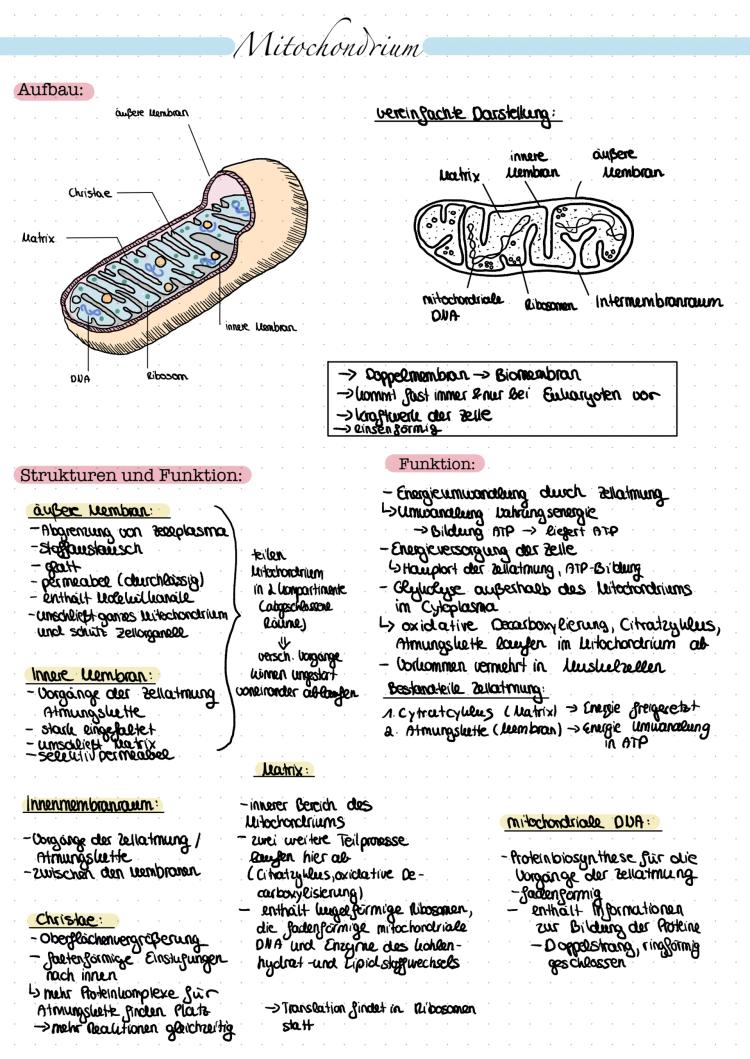 Mitochondrium
Aufbau:
äußere Membran
Christae
Matrix
innere Membran
DNA
Ribosom
vereinfachte Darstellung:
Matrix
innere
Membran
äußere
Membran
mitochondriale
DNA
Ribosomen
Intermembranraum
→ Doppelmembran → Biomembran
→ kommt fast immer & nur bei Eukaryoten vor
→ Kraftwerk der Zelle
→ linsenförmig
Strukturen und Funktion:
äußere Membran:
- Abgrenzung von Zellplasma
- Stoffaustausch
- glatt
- permeabel (durchlässig)
- enthält Molekülkanäle
- umschließt ganzes Mitochondrium
und schütz Zellorganell
Innere Membran:
- Vorgänge der Zellatmung
Atmungskette
- stark eingefaltet
- umschließt Matrix
- selektiv permeabel
teilen
Mitochondrium
in 2 Kompartimente
(abgeschlossene
Räume)
⇓
versch. Vorgänge
können ungestört
voneinander ablaufen
Funktion:
- Energieumwandlung durch Zellatmung
↳ Umwandlung Nahrungsenergie
→ Bildung ATP → liefert ATP
- Energieversorgung der Zelle
↳ Hauptort der Zellatmung, ATP-Bildung
- Glykolyse außerhalb des Mitochondriums
im Cytoplasma
↳ oxidative Decarboxylierung, Citratzyklus,
Atmungskette laufen im Mitochondrium ab
- Vorkommen vermehrt in Muskelzellen
Bestandteile Zellatmung:
1. Cytratcyklus (Matrix) → Energie freigesetzt
2. Atmungskette (Membran) → Energie Umwandlung
in ATP
Innenmembranraum:
- Vorgänge der Zellatmung /
Atmungskette
- zwischen den Membranen
Christae:
- Oberflächenvergrößerung
- faltenförmige Einstüpungen
nach innen
↳ mehr Proteinkomplexe für
Atmungskette finden Platz
→ mehr Reaktionen gleichzeitig
Matrix:
- innerer Bereich des
Mitochondriums
- zwei weitere Teilprozesse
laufen hier ab
(Citratzyklus, oxidative De-
carboxylisierung)
- enthält kugelförmige Ribosomen,
die fadenförmige mitochondriale
DNA und Enzyme des Kohlen-
hydrat -und Lipidstoffwechsels
→ Translation findet in Ribosomen
statt
mitochondriale DNA:
- Proteinbiosynthese für die
Vorgänge der Zellatmung
- fadenförmig
- enthält Informationen
zur Bildung der Proteine
- Doppelstrang, ringförmig
geschlossen